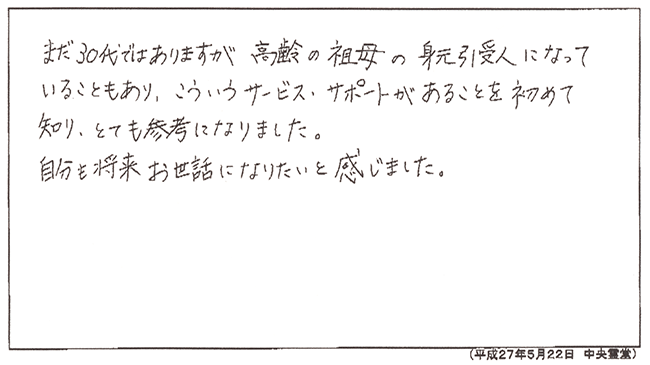 まだ30代ではありますが 高齢の祖母の身元引受人になって
いることもあり、こういうサービス・サポートがあることを初めて
知り、とても参考になりました。
自分も将来お世話になりたいと感じました。
(平成27年5月22日 中央霊堂)